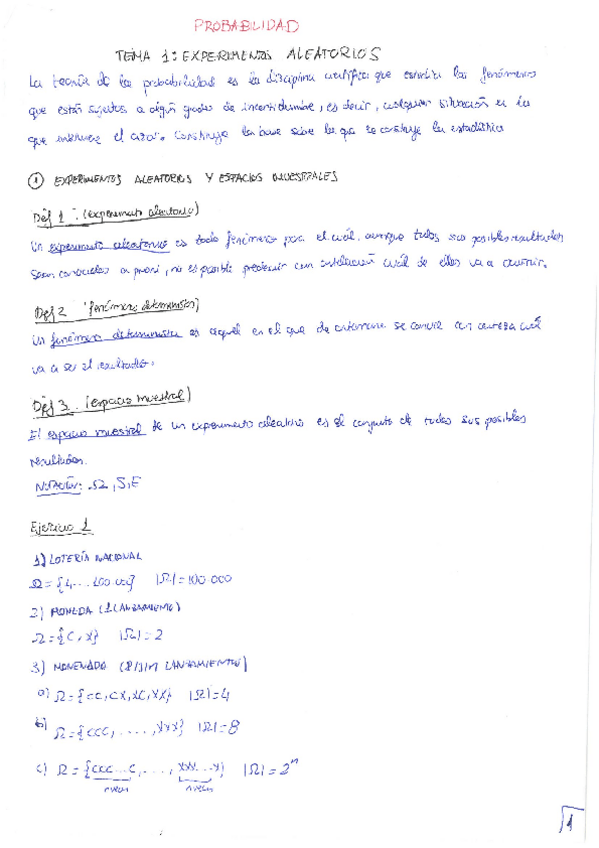 PROBABILIDAD
TEMA 1: EXPERIMENTOS ALEATORIOS
La teoría de la probabilidad es la disciplina científica que estudia los fenómenos
que están sujetos a algún grado de incertidumbre, es decir, cualquier situación en la
que interviene el azar. Construye la base sobre la que se construye la estadística
① EXPERIMENTOS ALEATORIOS Y ESPACIOS MUESTRALES
Def 1. (experimento aleatorio)
Un experimento aleatorio es todo fenómeno para el cuál, aunque todos sus posibles resultados
sean conocidos a priori, no es posible predecir con antelación cuál de ellos va a ocurrir.
Def 2 (fenómeno determinista)
Un fenómeno determinista es aquel en el que de antemano se conoce con certeza cuál
va a ser el resultado.
Def 3. (espacio muestral)
El espacio muestral de un experimento aleatorio es el conjunto de todos sus posibles
resultados.
NOTACIÓN: Ω, S, E
Ejercicio 1
1) LOTERÍA NACIONAL
|Ω| = 100.000
2) MONEDA (1 LANZAMIENTO)
Ω = {C, X} |Ω| = 2
3) LANZAMIENTOS)
a) Ω = {CC, CX, XC, XX} |Ω| = 4
b) Ω = {CCC, ...., XXX} |Ω| = 8
c) Ω = {CCC...C, ...., XXX...X} |Ω| = 2ⁿ
n veces n veces
1